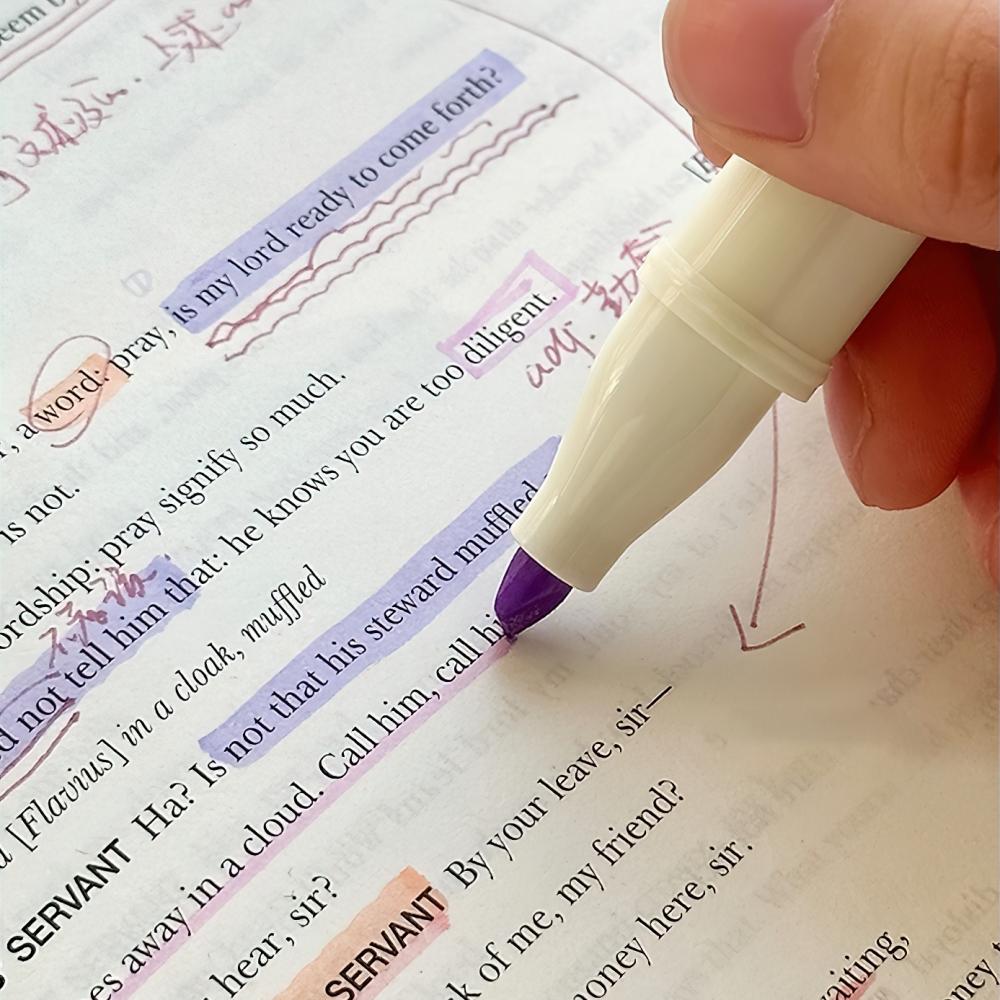 is my lord ready to come forth?
a word: pray,
diligent.
adj. 勤
is not.
pray signify so much.
ordship; pray
not tell him that: he knows you are too
[Flavius] in a cloak, muffled
SERVANT Ha? Is not that his steward muffled
es away in a cloud. Call him, call hi
hear, sir?
SERVANT By your leave, sir—
k of me, my friend?
money here, sir.
aiting,
ney